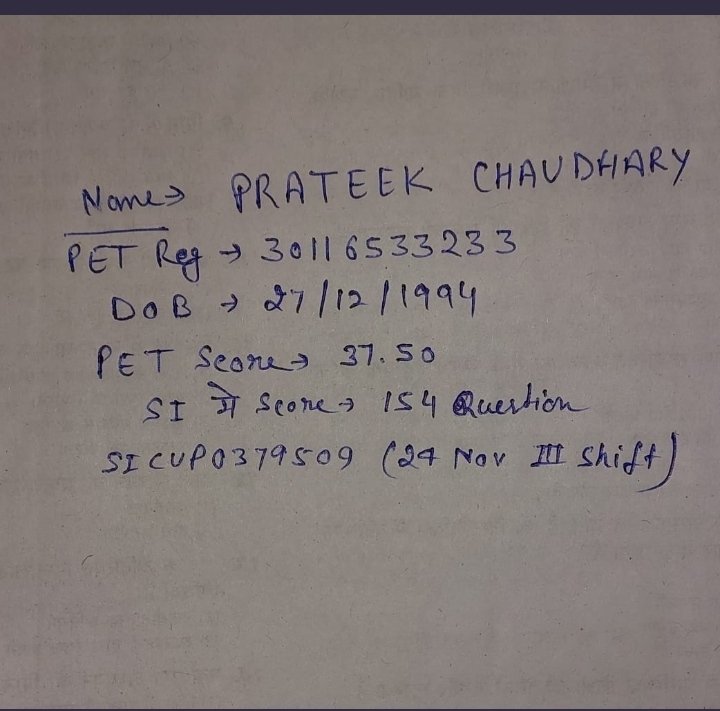 Name → PRATEEK CHAUDHARY
PET Reg → 30116533233
DOB → 27/12/1994
PET Score → 37.50
SI में Score → 154 Question
SICUP0379509 (24 Nov III Shift)